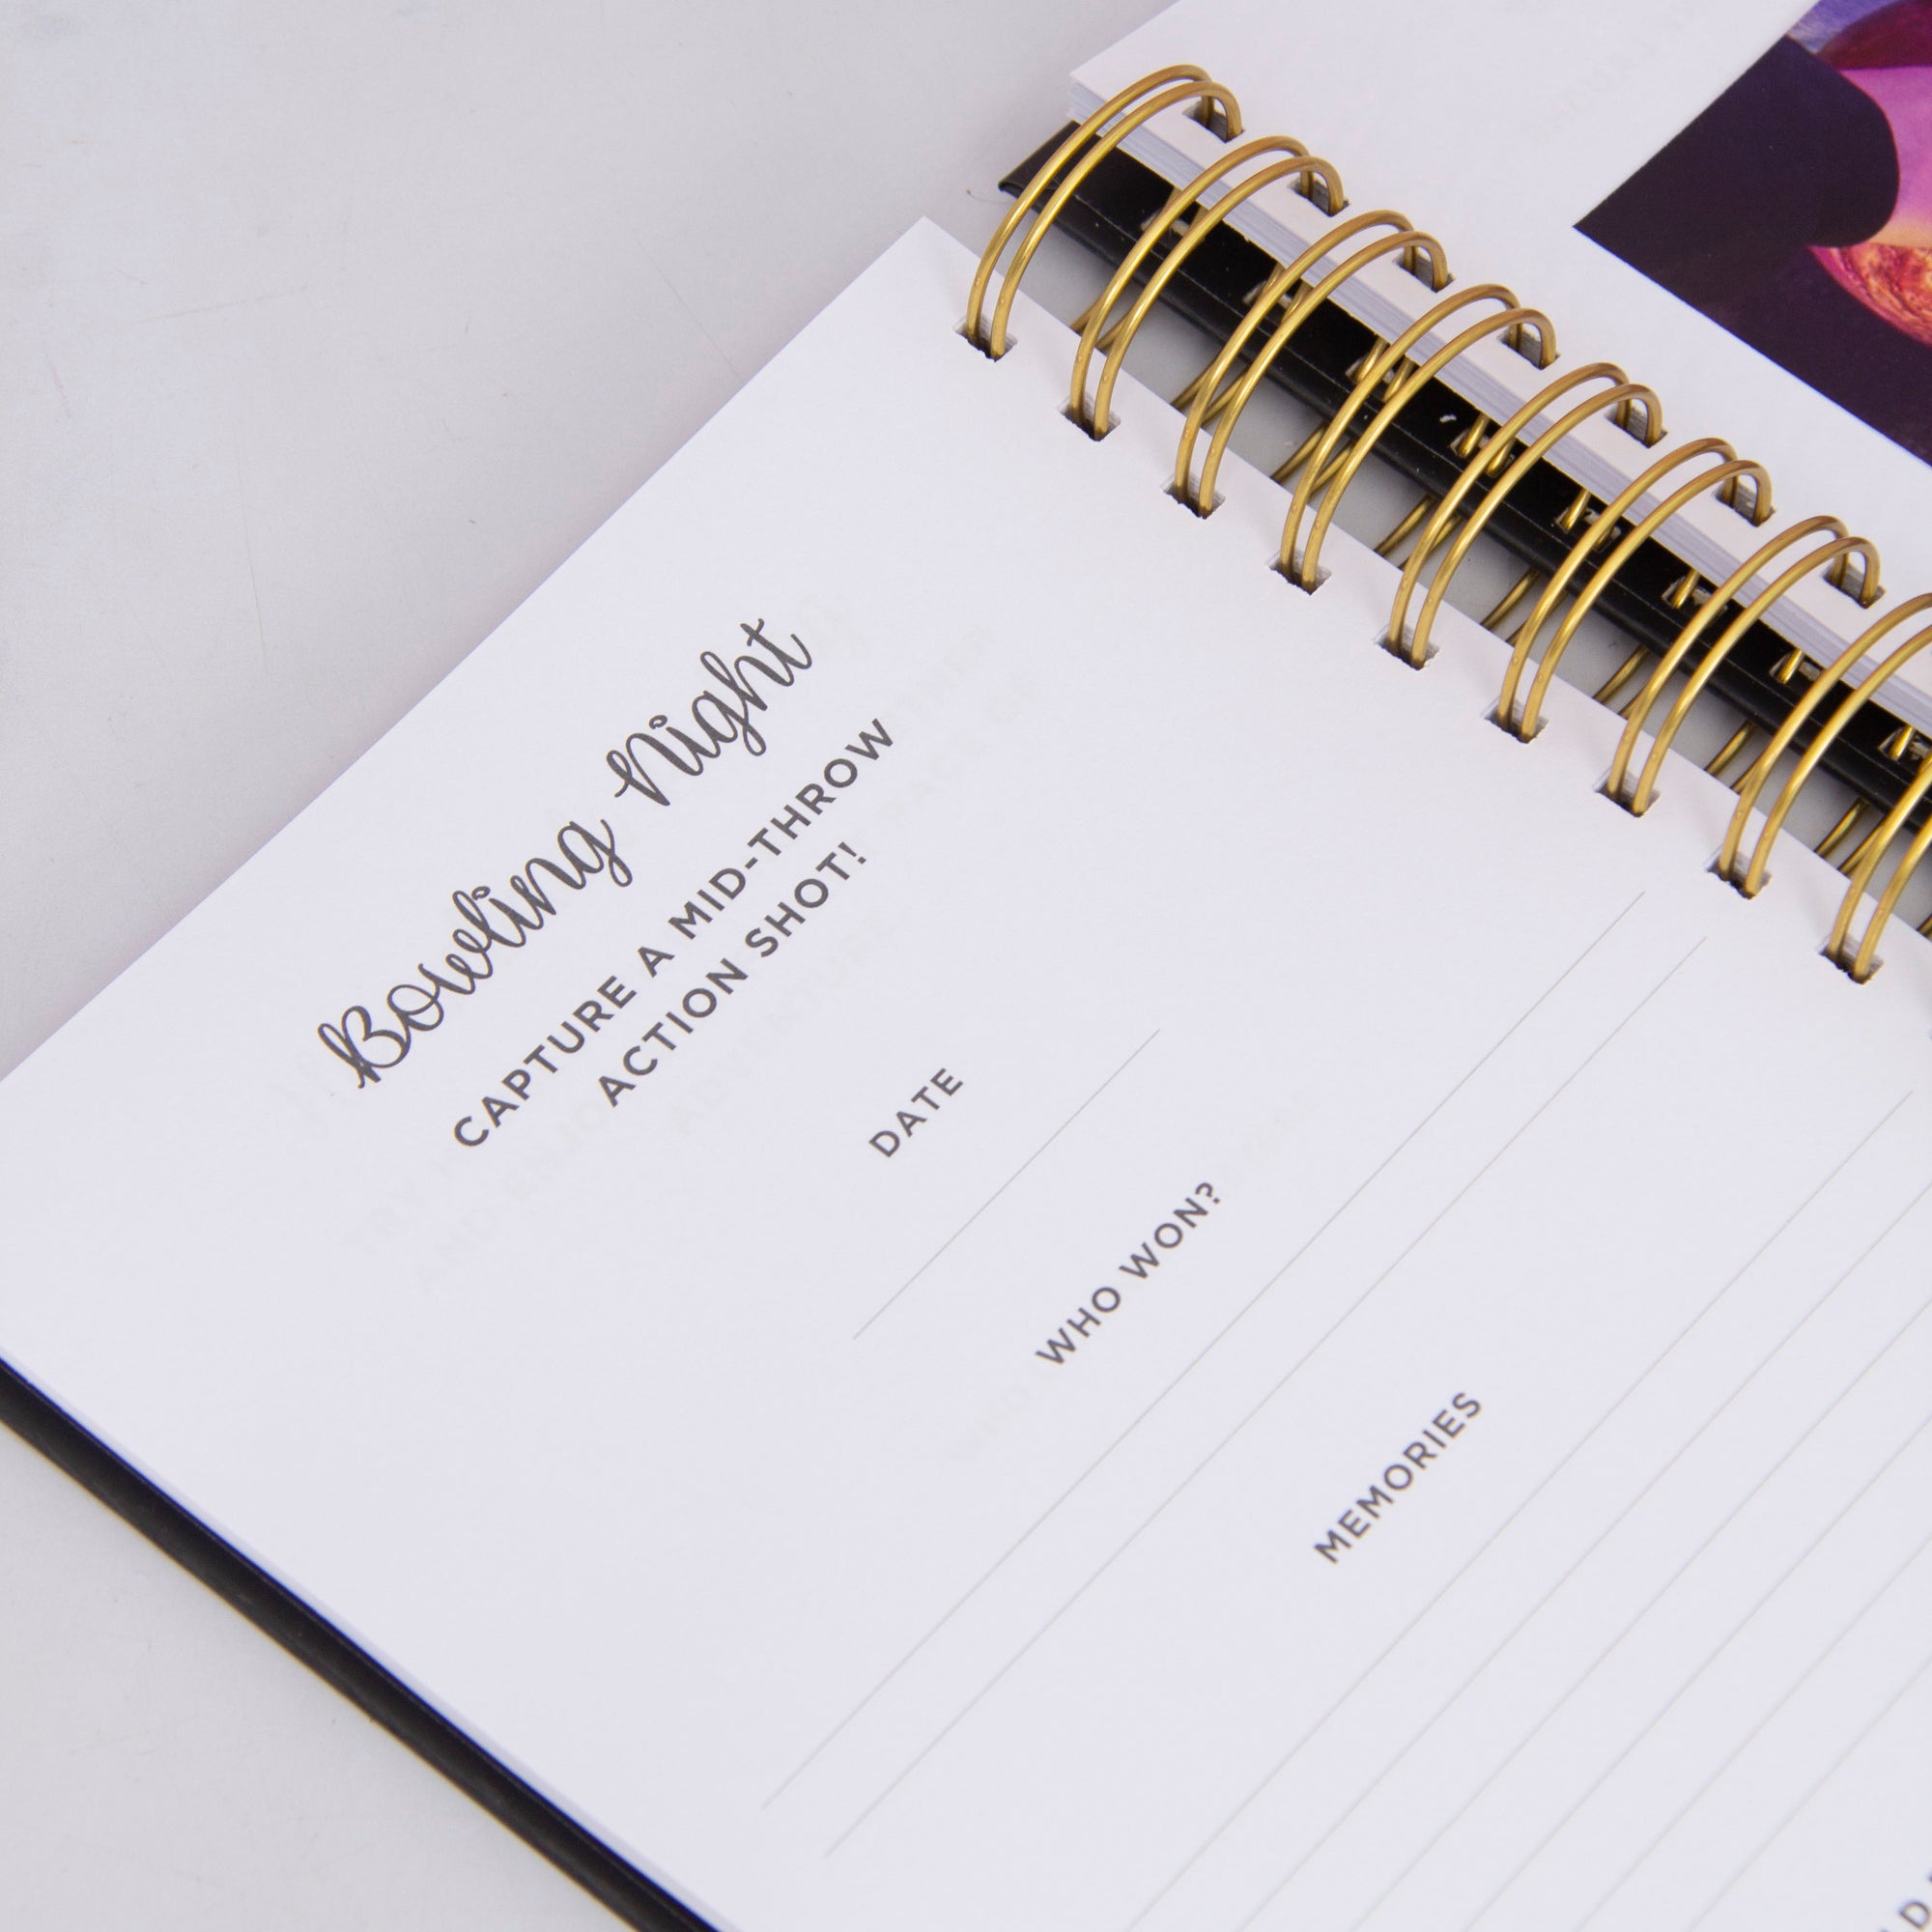 Bowling Night
CAPTURE A MID-THROW
ACTION SHOT!
DATE
WHO WON?
MEMORIES